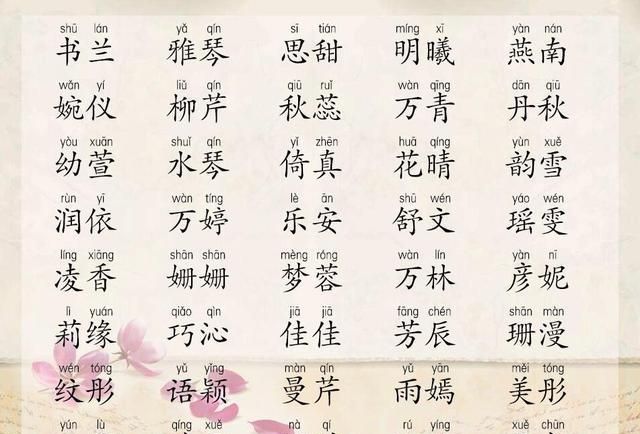 shū lán yǎ qín sī tián míng xī yàn nán
书兰 雅琴 思甜 明曦 燕南
wǎn yí liǔ qín qiū ruǐ wàn qīng dān qiū
婉仪 柳芹 秋蕊 万青 丹秋
yòu xuān shuǐ qín yǐ zhēn huā qíng yùn xuě
幼萱 水琴 倚真 花晴 韵雪
rùn yī wàn tíng lè ān shū wén yáo wén
润依 万婷 乐安 舒文 瑶雯
líng xiāng shān shān mèng róng wàn lín yàn nī
凌香 姗姗 梦蓉 万林 彦妮
lì yuán qiǎo qìn jiā jiā fāng chén shān màn
莉缘 巧沁 佳佳 芳辰 珊漫
wén tóng yǔ yǐng màn qín yǔ yān měi tóng
纹彤 语颖 曼芹 雨嫣 美彤
yún lù qíng xuě nà qí rú yíng xuě qíng